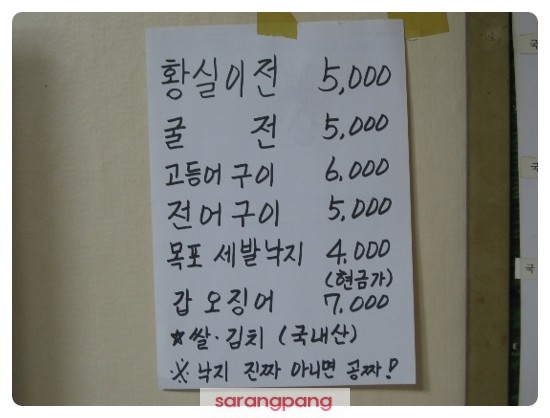 황실이전 5,000
굴 전 5,000
고등어 구이 6,000
전어구이 5,000
목포 세발낙지 4,000
(현금가)
갑 오징어 7,000
☆쌀·김치 (국내산)
※ 낙지 진짜 아니면 공짜!
국
국
국
sarangpang